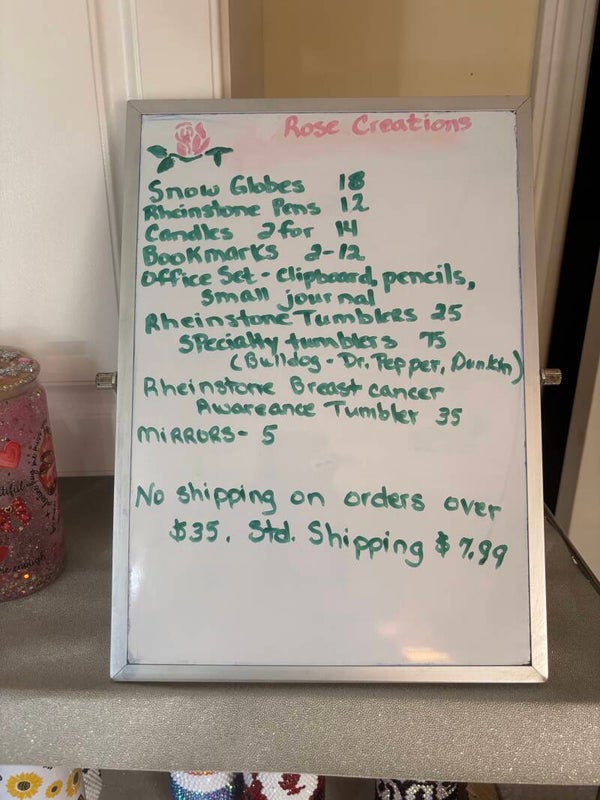 Rose Creations
Snow Globes 18
Rheinstone Pens 12
Candles 2 for 14
Bookmarks 2-12
Office Set - Clipboard, pencils,
Small journal
Rheinstone Tumblers 25
Specialty tumblers 75
(Bulldog - Dr. Pepper, Dunkin)
Rheinstone Breast cancer
Awareance Tumbler 35
MIRRORS- 5
No shipping on orders over
$35. Std. Shipping $7.99